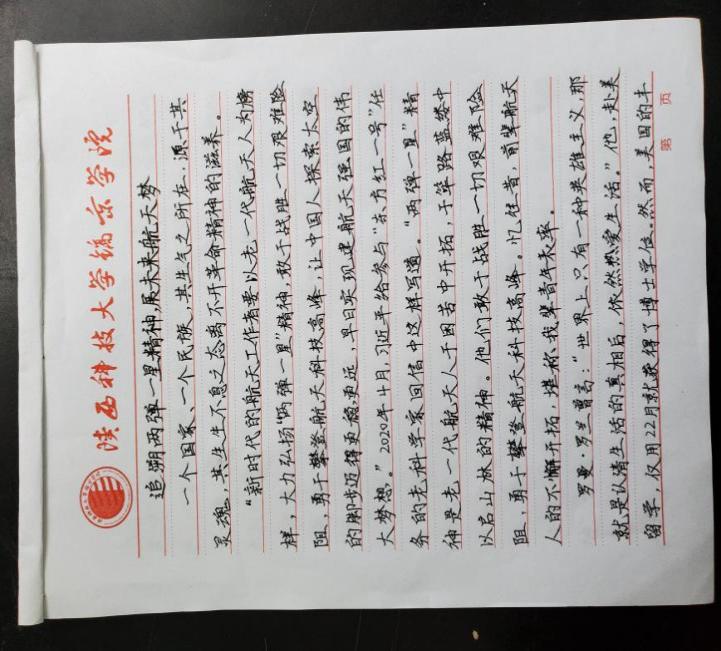 陕西科技大学镐京学院
追朔两弹一星精神,展未来航天梦
一个国家、一个民族,其生气之所在,源于其
灵魂,其生生不息之态离不开革命精神的滋养。
“新时代的航天工作者要以老一代航天人为榜
样,大力弘扬“两弹一星”精神,敢于战胜一切艰难险
阻,勇于攀登航天科技高峰,让中国人探索太空
的脚步迈得更稳更远,早日实现建航天强国的伟
大梦想。”2020年4月习近平给参与“东方红一号”任
务的老科学家回信中这样写道。“两弹一星”精
神是老一代航天人于困苦中开拓,于筚路蓝缕中
以启山林的精神。他们敢于战胜一切艰难险
阻,勇于攀登航天科技高峰。忆往昔,前辈航天
人的不懈开拓,堪称我辈青年表率。
罗曼·罗兰曾言:“世界上只有一种英雄主义,那
就是认清生活的真相后,依然热爱生活。”他,赴美
留学,仅用22月就获得了博士学位。然而,美国的丰
第 页